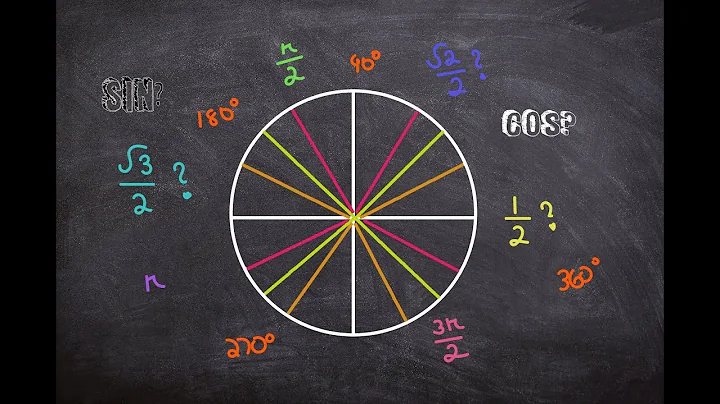 π/2
90°
√2/2 ?
SIN?
180°
COS?
√3/2 ?
1/2 ?
π
360°
270°
3π/2